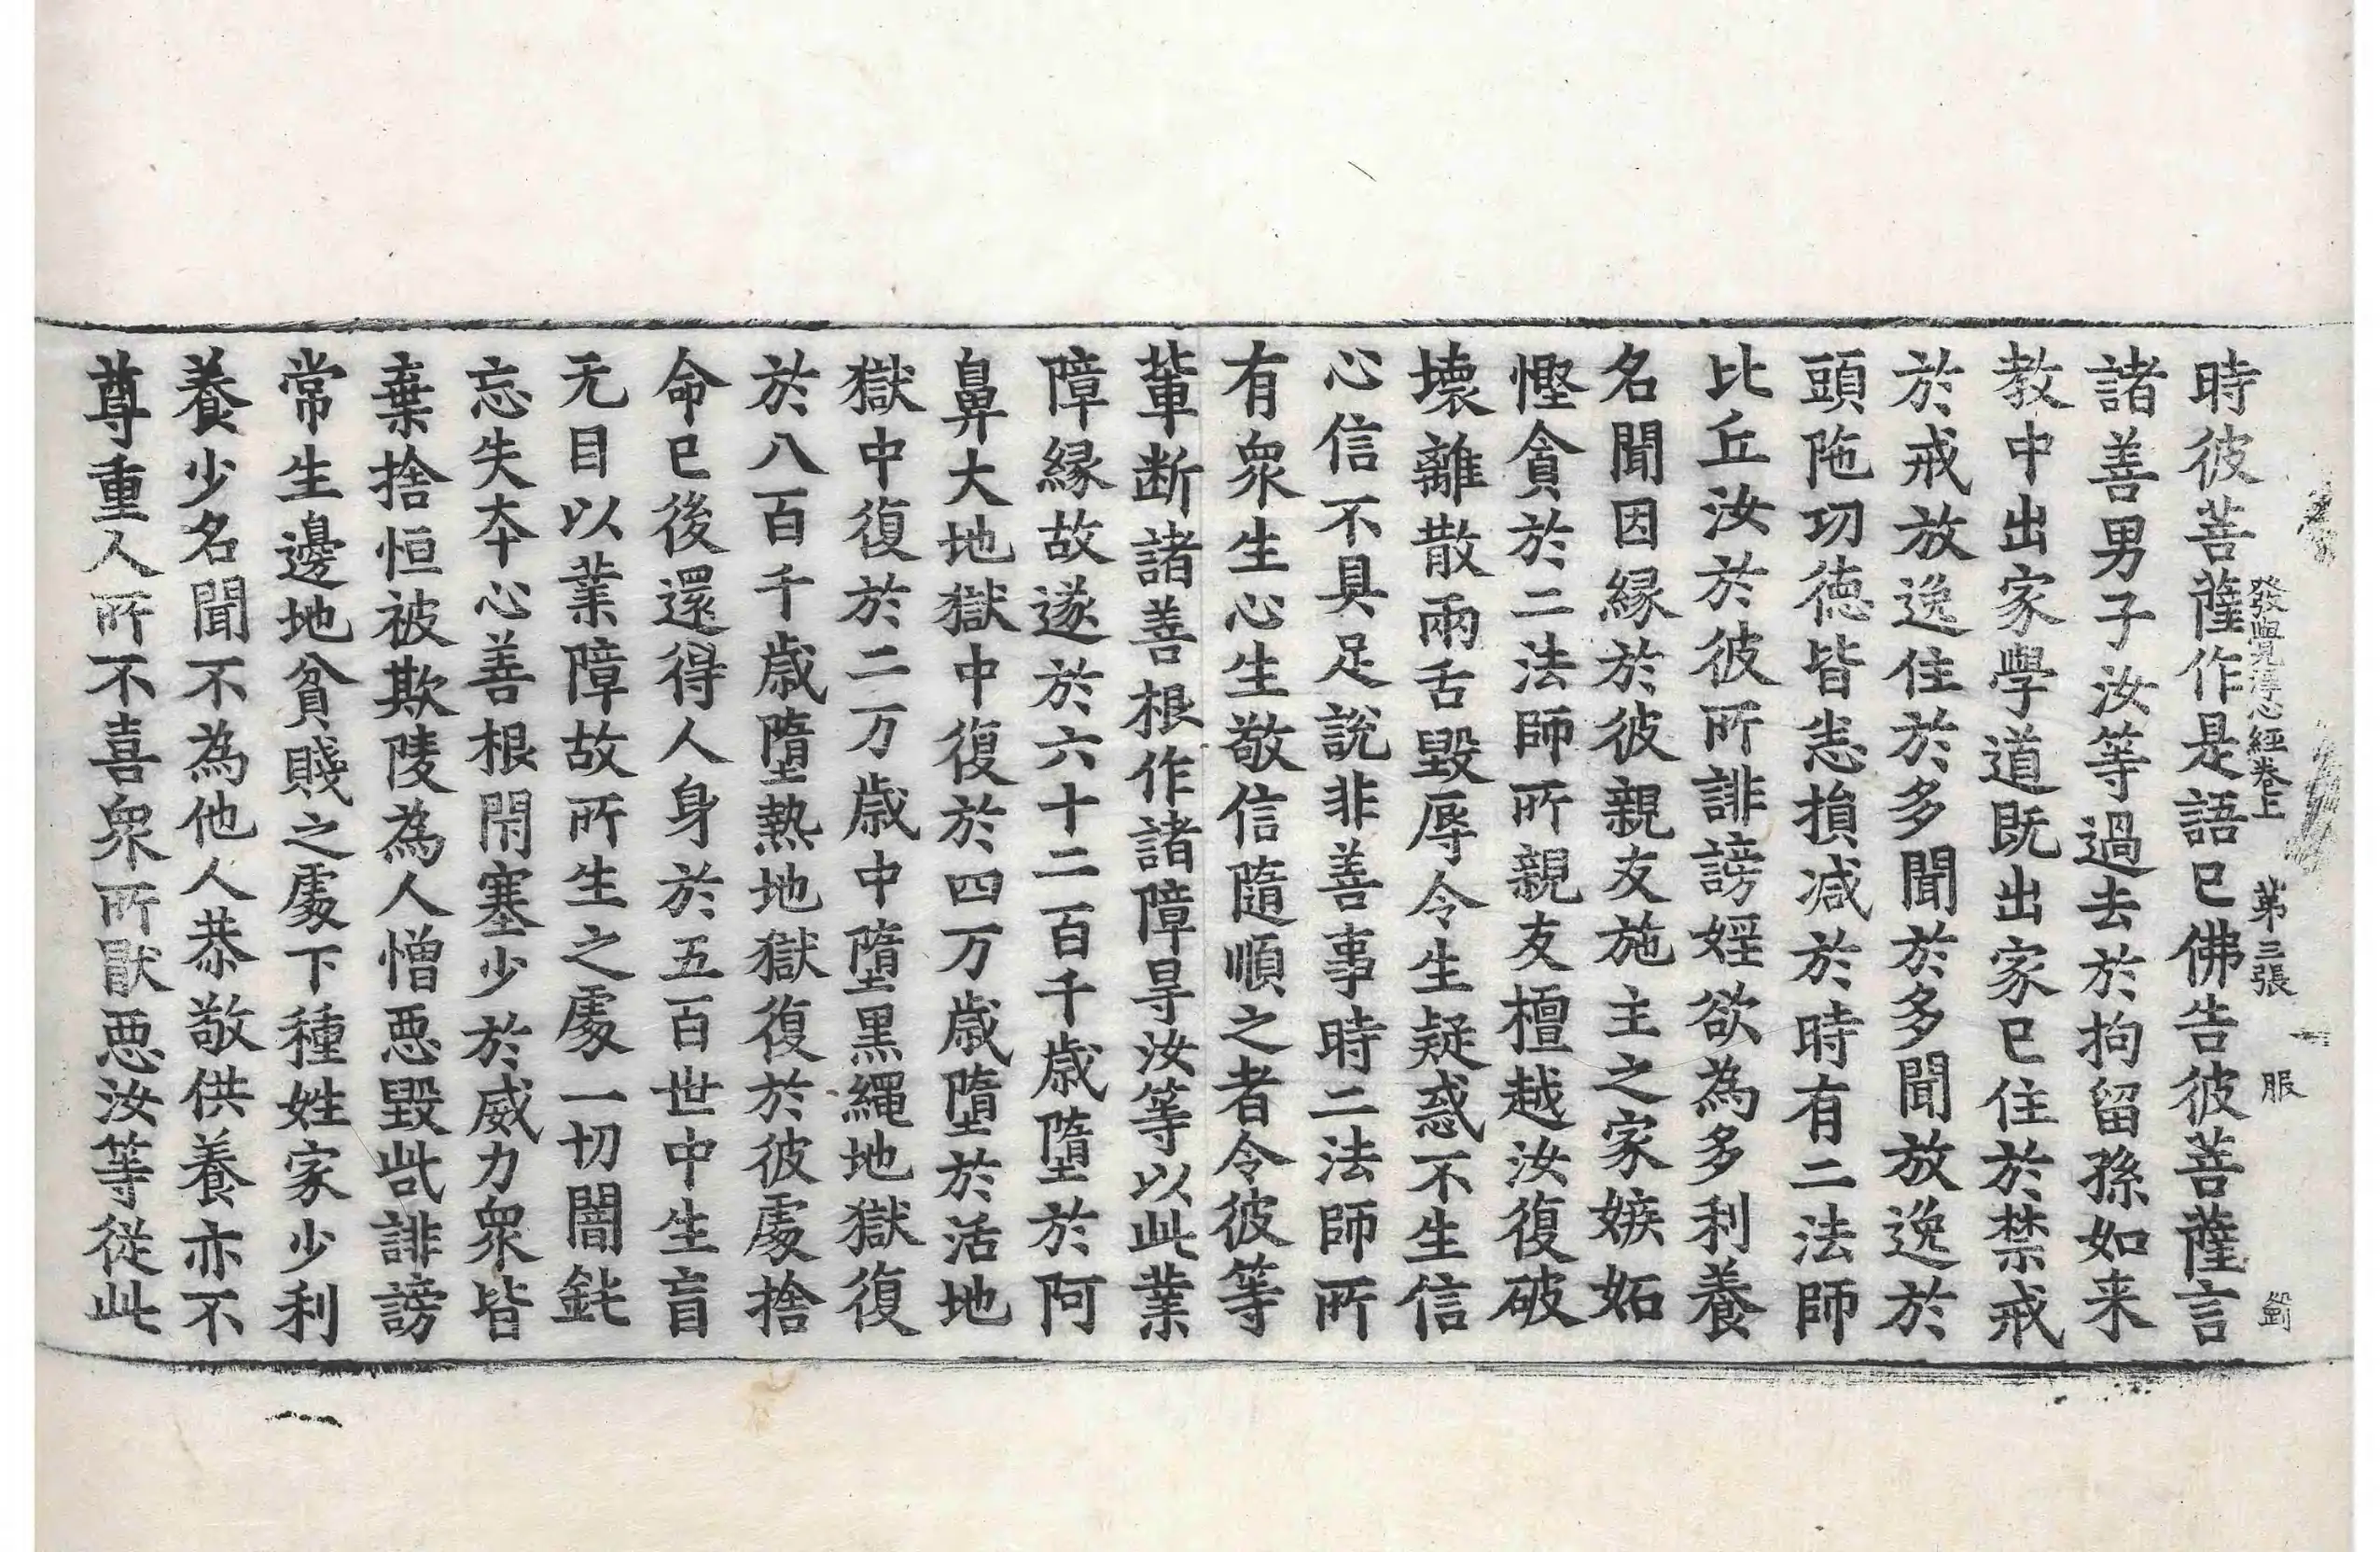 發覺淨心經卷上 第三張 服
時彼菩薩作是語已佛告彼菩薩言
諸善男子汝等過去於拘留孫如来
教中出家學道既出家已住於禁戒
於戒放逸住於多聞於多聞放逸於
頭陁功德皆悉損減於時有二法師
比丘汝於彼所誹謗婬欲為多利養
名聞因縁於彼親友施主之家嫉妬
慳貪於二法師所親友檀越汝復破
壊離散兩舌毀辱令生疑惑不生信
心信不具足說非善事時二法師所
有衆生心生敬信隨順之者令彼等
軰断諸善根作諸障㝵汝等以此業
障縁故遂於六十二百千歳墮於阿
鼻大地獄中復於四万歳墮於活地
獄中復於二万歳中墮黒繩地獄復
於八百千歳墮熱地獄復於彼處捨
命已後還得人身於五百世中生盲
无目以業障故所生之處一切闇鈍
忘失夲心善根閇塞少於威力衆皆
棄捨恒被欺陵為人憎惡毀呰誹謗
常生邊地貧賤之處下種姓家少利
養少名聞不為他人恭敬供養亦不
尊重人所不喜衆所猒惡汝等從此